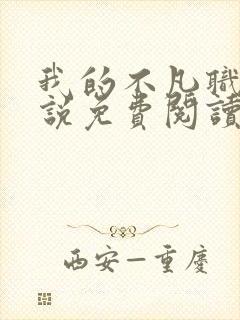 我的不凡職
說免費閱讀
西安—重慶